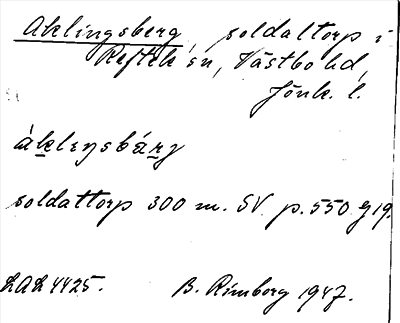 Aklingsberg, soldattorp i
Reftele sn, Västbo hd,
Jönk. l.
àklɩŋsbárj
soldattorp 300 m. SV. p. 550 g 19.
LAL 4425. B. Rimborg 1947.